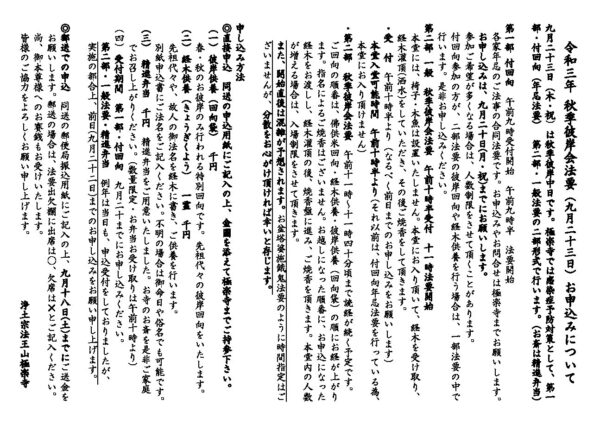 令和三年 秋季彼岸会法要（九月二十三日）お申込みについて
九月二十三日（木・祝）は秋季彼岸中日です。極楽寺では感染症予防対策として、第一
部・付回向（年忌法要） 第二部・一般法要の二部形式で行います。（お斎は精進弁当）
第一部 付回向 午前九時受付開始 午前九時半 法要開始
各家年忌のご法事の合同法要です。お申込みやお問合せは極楽寺までお願いします。
お申し込みは、九月二十日（月・祝）までにお願いします。
参加ご希望が多くなる場合は、人数制限をさせて頂くことがあります。
付回向参加の方が、二部法要の彼岸回向や経木供養を行う場合は、一部法要の中で
行います。是非お申し込みください。
第二部 一般 秋季彼岸会法要 午前十時半受付 十一時法要開始
本堂には、椅子・木魚は設置いたしません。本堂にお入り頂いて、経木を受け取り、
経木灌頂（浴水）をしていただき、その後ご焼香をして頂きます。
・受 付 午前十時半より（なるべく前日までのお申し込みをお願いします）
本堂入堂可能時間 午前十時半より（それ以前は付回向年忌法要を行っている為、
本堂にお入り頂けません）
・第二部 秋季彼岸会法要 午前十一時〜十一時四十分頃まで読経が続く予定です。
ご回向の順番は、佛供米回向・経木供養・彼岸供養（回向袋）の順にお経が上がり
ます。指名によるご焼香はございません。お越しになった順番に、お申込になった
経木をお渡しし、経木灌頂の後、焼香盤に進み、ご焼香を頂きます。本堂内の人数
が増える場合は、入場制限をさせて頂きます。
また、開始直後は混雑が予想されます。お盆塔婆施餓鬼法要のように時間指定はご
ざいませんが、分散をお心がけ頂ければ幸いと存じます。
申し込み方法
◎直接申込 同送の申込用紙にご記入の上、金圓を添えて極楽寺までご持参下さい。
（一）彼岸供養（回向袋） 千円
春・秋のお彼岸のみ行われる特別回向です。先祖代々の彼岸回向をいたします。
（二）経木供養（きょうぎくよう） 一霊 千円
先祖代々や、故人の御法名を経木に書き、ご供養を行います。
別紙申込書にご法名をご記入ください。不明の場合は御命日や俗名でも可能です。
（三）精進弁当 千円 精進弁当をご用意いたしました。お寺のお斎を是非ご家庭
でお召し上がりください。（数量限定・お弁当お受け取りは午前十時より）
（四）受付期間 第一部・付回向 九月二十日（月・祝）までにお申し込みください。
第二部・一般法要・精進弁当 例年は当日も、申込受付をしておりましたが、
実施の都合上、前日（九月二十二日）までのお申し込みをお願い申し上げます。
◎郵送での申込 同送の郵便局振込用紙にご記入の上、九月十八日（土）までにご送金を
お願いします。郵送の場合は、法要出欠欄に出席は○、欠席は×とご記入ください。
尚、御本尊様へのお賽銭もお受けいたします。
皆様のご協力をよろしくお願い申し上げます。
浄土宗法王山極楽寺